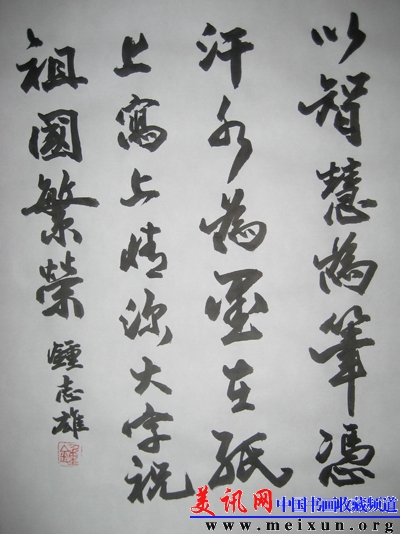 以智慧為筆憑
汗水為墨在紙
上寫上情深大字祝
祖國繁榮
鍾志雄
美讯网中国书画收藏频道
www.meixun.org